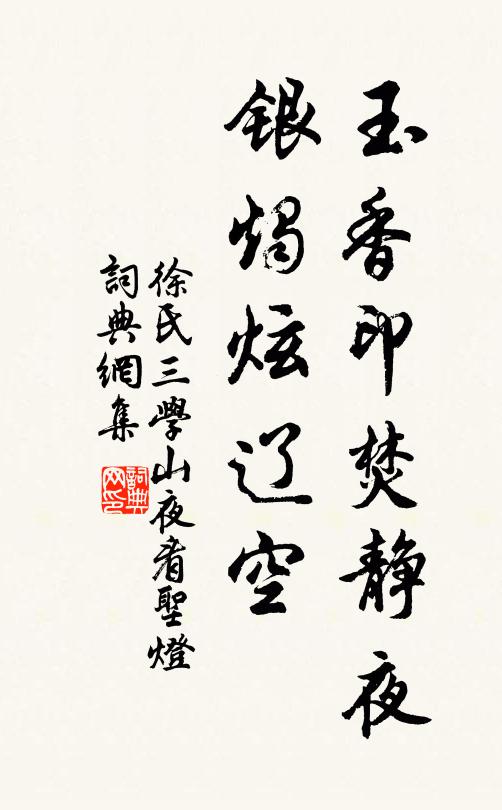 玉香印焚静夜
银烛炫辽空
徐氏三學山夜看聖燈
詞典網集
詞典网印